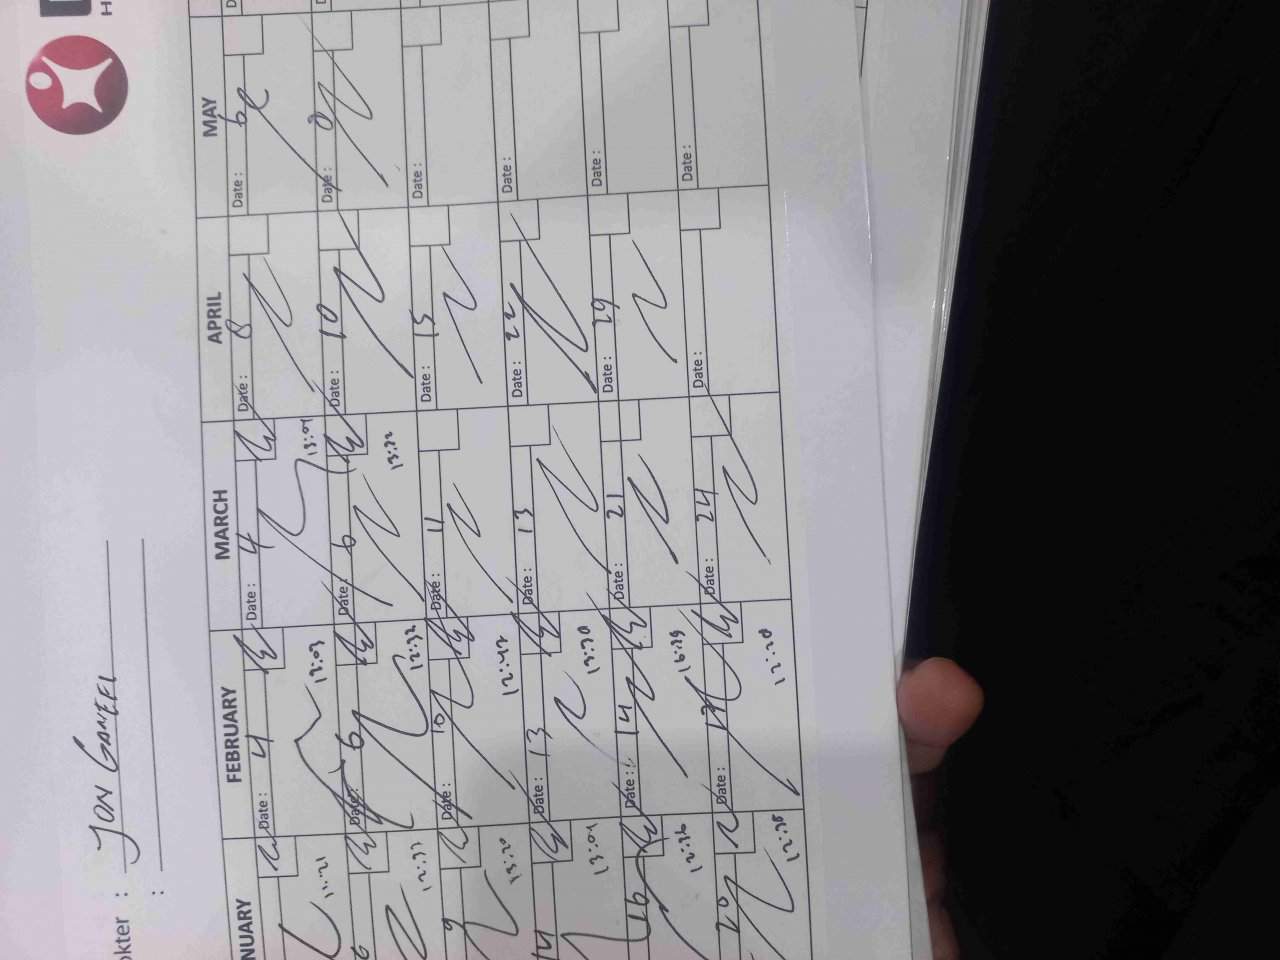 okter : JON GANEFI
:
NUARY FEBRUARY MARCH APRIL MAY
Date : 4 Date : 4 Date : 8 Date : 6
11:21 12:03 13:01
6 Date : 6 Date : 6 Date : 10 Date : 9
12:33 12:32 13:22
9 Date : 10 Date : 11 Date : 15 Date :
13:20 12:42
14 Date : 13 Date : 13 Date : 22 Date :
13:01 13:30
16 Date : 14 Date : 21 Date : 29 Date :
12:36 16:39
20 Date : 17 Date : 24 Date : Date :
12:38 12:20